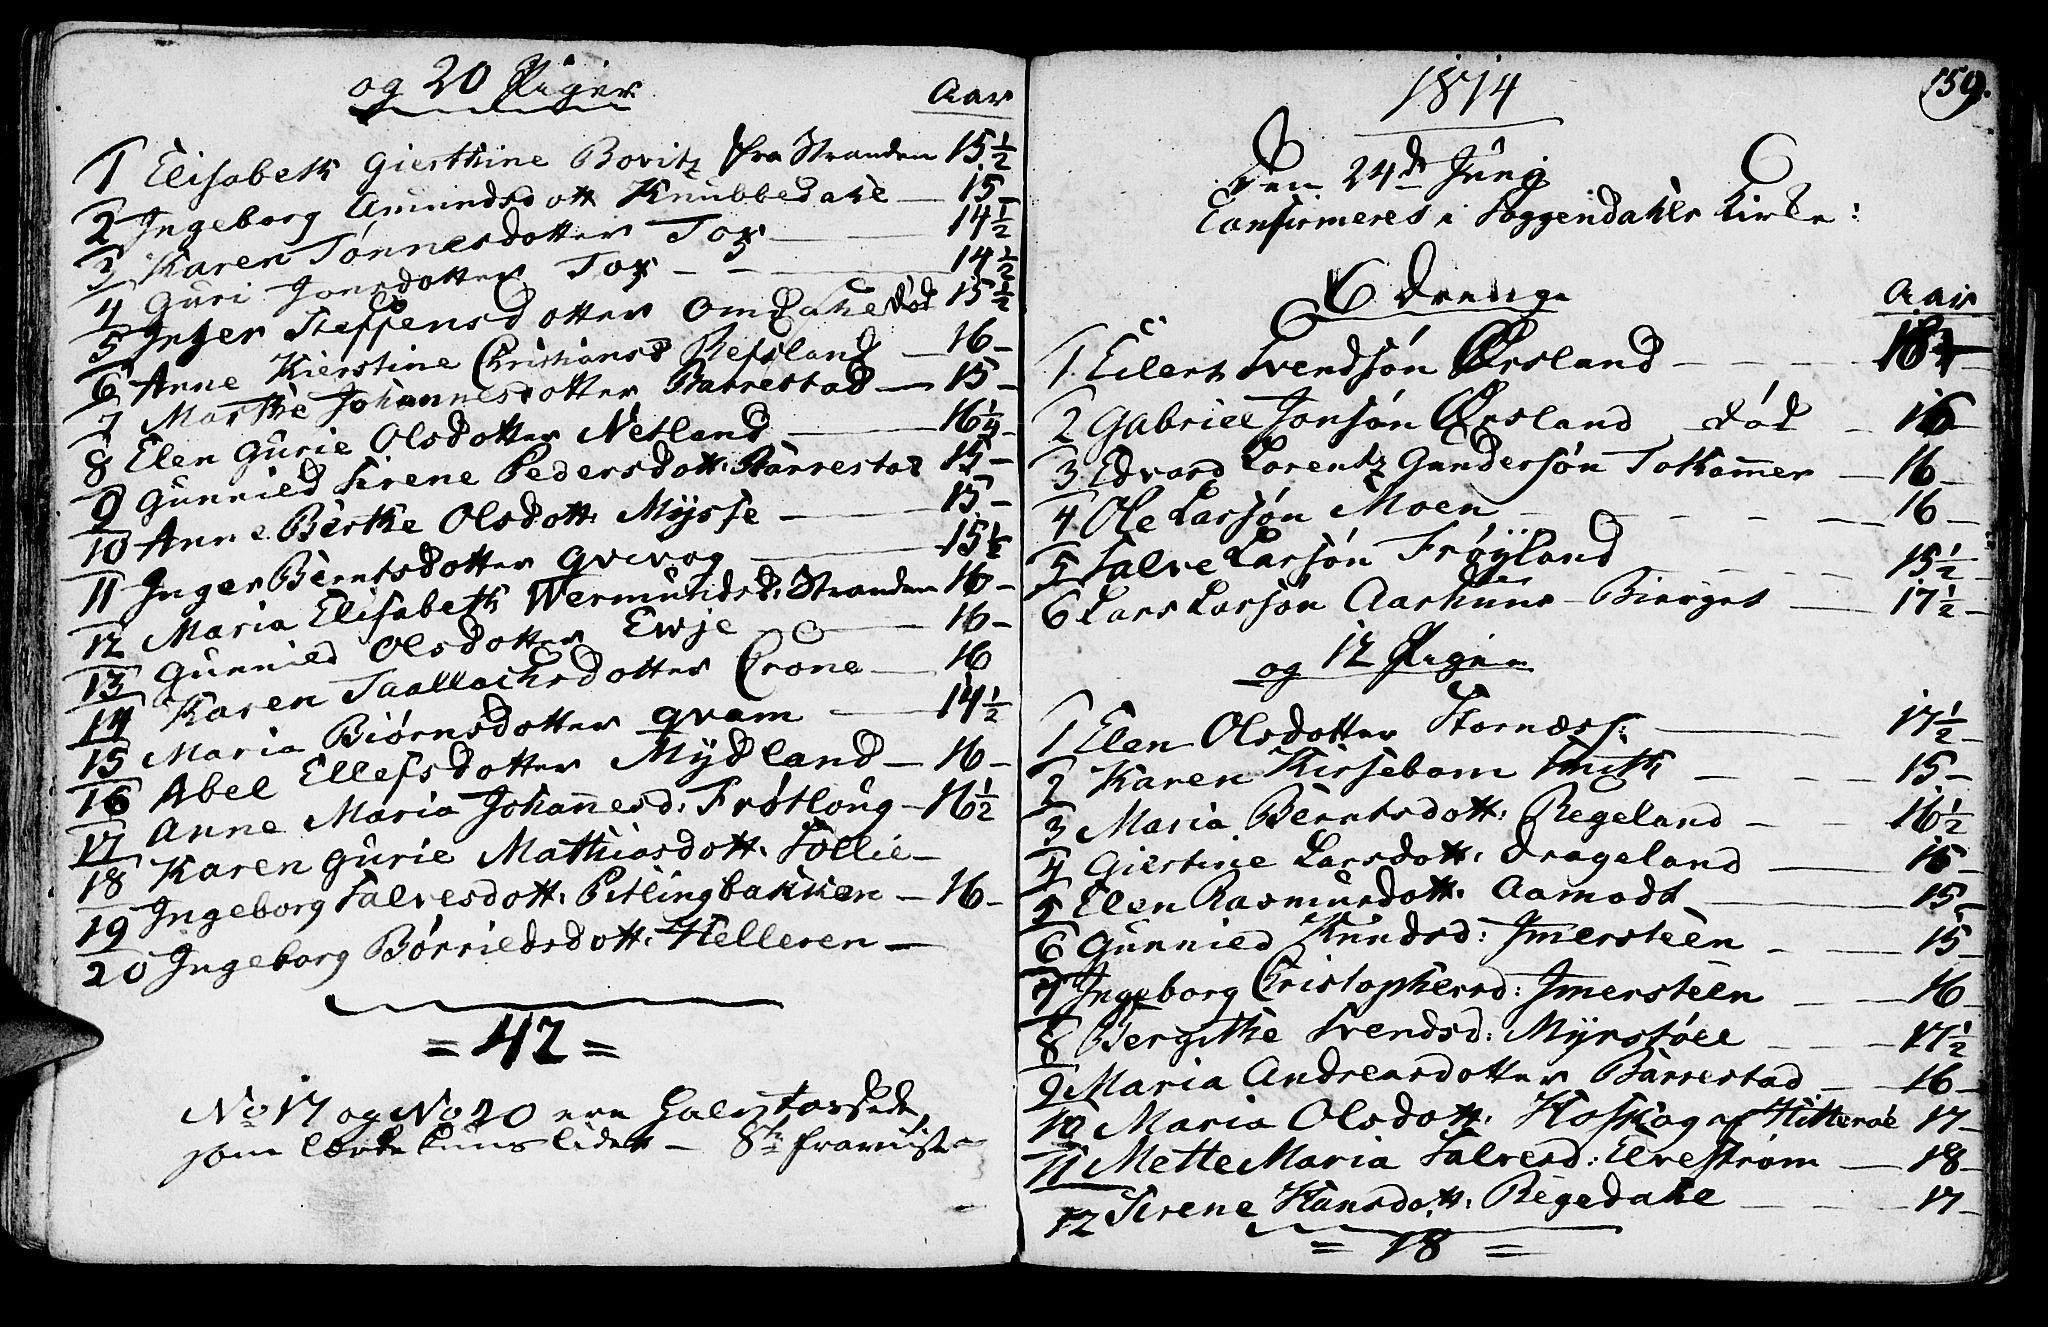 og 20 Piger
Aar
1 Elisabeth Gierthine Bovitz fra Stranden 15 1/2
2 Ingeborg Amundsdott Knubbedahl — 15 —
3 Karen Tønnesdotter Tox — 14 1/2
4 Guri Jonsdotter Tox — 14 1/2
5 Inger Steffensdotter Omdahl død 15 1/2
6 Anne Kierstine Christiansd Refsland — 16 —
7 Marthe Johannesdotter Barrestad — 15 —
8 Elen Gurie Olsdotter Netland — 16 1/4 —
9 Gunnild Sirene Pedersdott: Barrestad 15 —
10 Anne Berthe Olsdott: Mysse — 15 —
11 Inger Berntsdotter Qvivog — 15 1/2
12 Maria Elisabeth Wermundsd: Stranden 16 —
13 Gunnild Olsdotter Ewje — 16 —
14 Karen Taallachsdotter Crone — 16
15 Maria Biørnsdotter Qvam — 14 1/2
16 Abel Ellefsdotter Mydland — 16 —
17 Anne Maria Johannesd: Frøtloug — 16 1/2
18 Karen Gurie Mathiasdott: Sollie —
19 Ingeborg Salvesdott: Pitlingbakken — 16 —
20 Ingeborg Børrildsdott: Helleren —
= 42 =
No 17 og No 20 ere
som lærte kuns lidet —
159.
1814
Den 24de Junj
Confirmeres i Soggendahls Kirke:
6 Drenge
Aar
1 Eilert Svendsøn Ørsland — 18
2 Gabriel Jonsøn Ørsland død — 16
3 Edvard Lorentz Gundersøn Tothammer — 16 —
4 Ole Larsøn Moen — 16 —
5 Salve Larsøn Frøyland — 15 1/2 —
6 Lars Larsøn Aarhuus Bierget — 17 1/2 —
og 12 Piger
1 Elen Olsdotter Stornæss: — 17 1/2 —
2 Karen Kirsebom Smith — 15 —
3 Maria Berntsdott: Regeland — 16 1/2
4 Giertine Larsdott: Drageland — 15 —
5 Elen Rasmusdott: Aamodt — 15 —
6 Gunnild Knudsd: Imersteen — 15 —
7 Ingeborg Christophersd: Imersteen — 16 —
8 Bergithe Svendsd: Myrstøll — 17 1/2
9 Maria Andreasdotter Barrestad — 16 —
10 Maria Olsdott: af Hitterøe 17 —
11 Mette Maria Salvesd: Elvestrøm — 18 —
12 Sirene Hansdott: Regedahl — 17 —
= 18 =